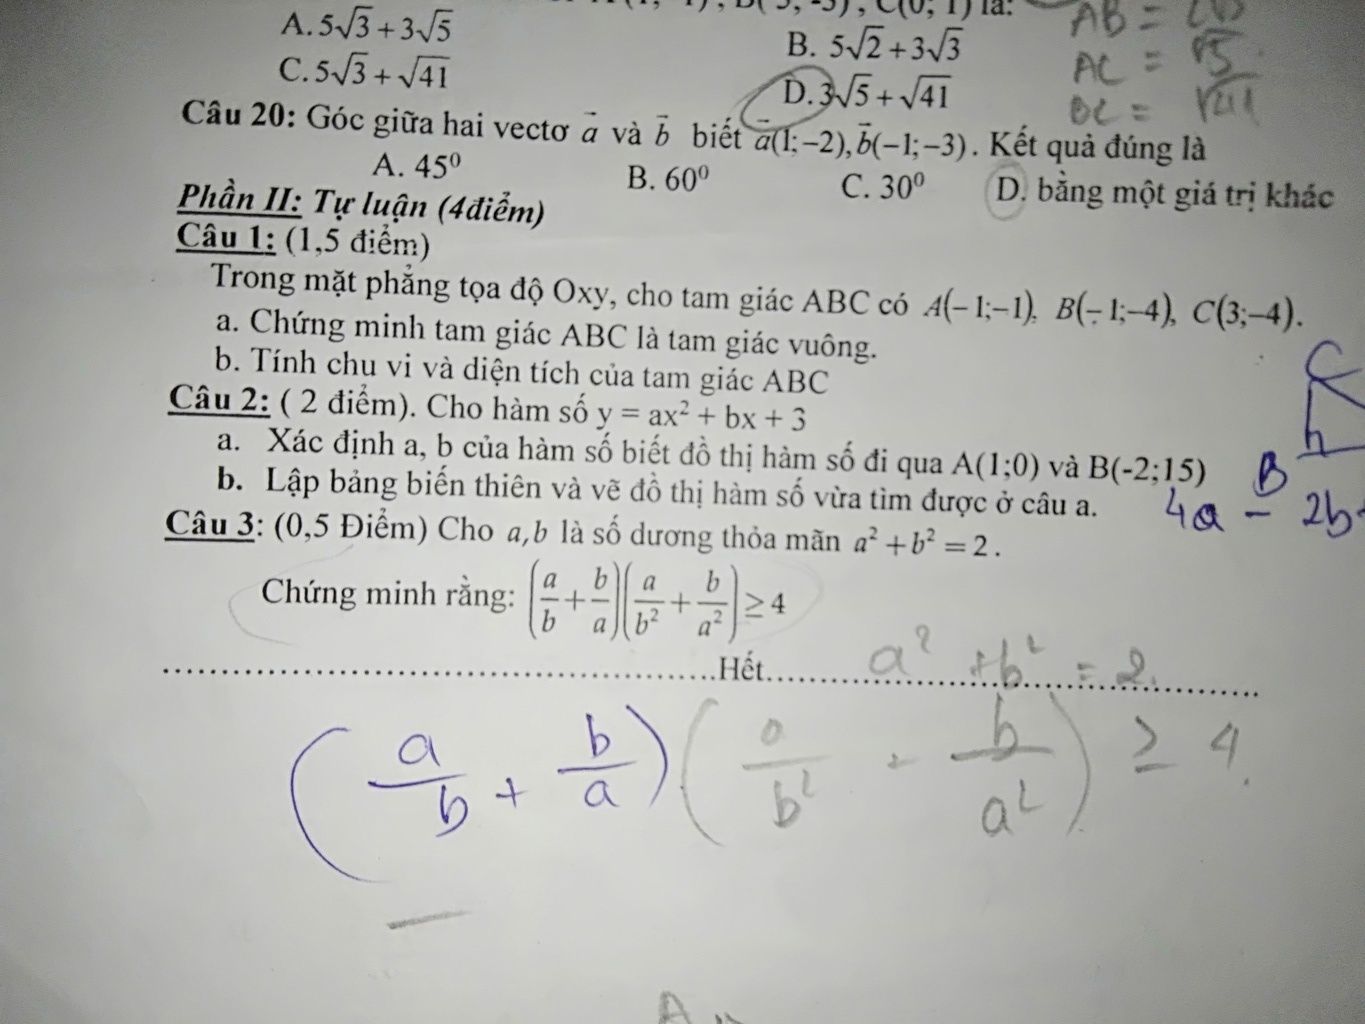 C(0; 1) là:
AB =
A. 5√3 + 3√5
B. 5√2 + 3√3
AC = √5
C. 5√3 + √41
D. 3√5 + √41
BC = √41
Câu 20: Góc giữa hai vectơ a⃗ và b⃗ biết a⃗(1;−2), b⃗(−1;−3). Kết quả đúng là
A. 45⁰
B. 60⁰
C. 30⁰
D. bằng một giá trị khác
Phần II: Tự luận (4điểm)
Câu 1: (1,5 điểm)
Trong mặt phẳng tọa độ Oxy, cho tam giác ABC có A(−1;−1), B(−1;−4), C(3;−4).
a. Chứng minh tam giác ABC là tam giác vuông.
b. Tính chu vi và diện tích của tam giác ABC
C
Câu 2: ( 2 điểm). Cho hàm số y = ax² + bx + 3
a. Xác định a, b của hàm số biết đồ thị hàm số đi qua A(1;0) và B(-2;15)
B
b. Lập bảng biến thiên và vẽ đồ thị hàm số vừa tìm được ở câu a.
4a − 2b+
Câu 3: (0,5 Điểm) Cho a,b là số dương thỏa mãn a² + b² = 2.
Chứng minh rằng: (a/b + b/a)(a/b² + b/a²) ≥ 4
Hết
a² + b² = 2.
(a/b + b/a)(a/b² - b/a²) ≥ 4.
A